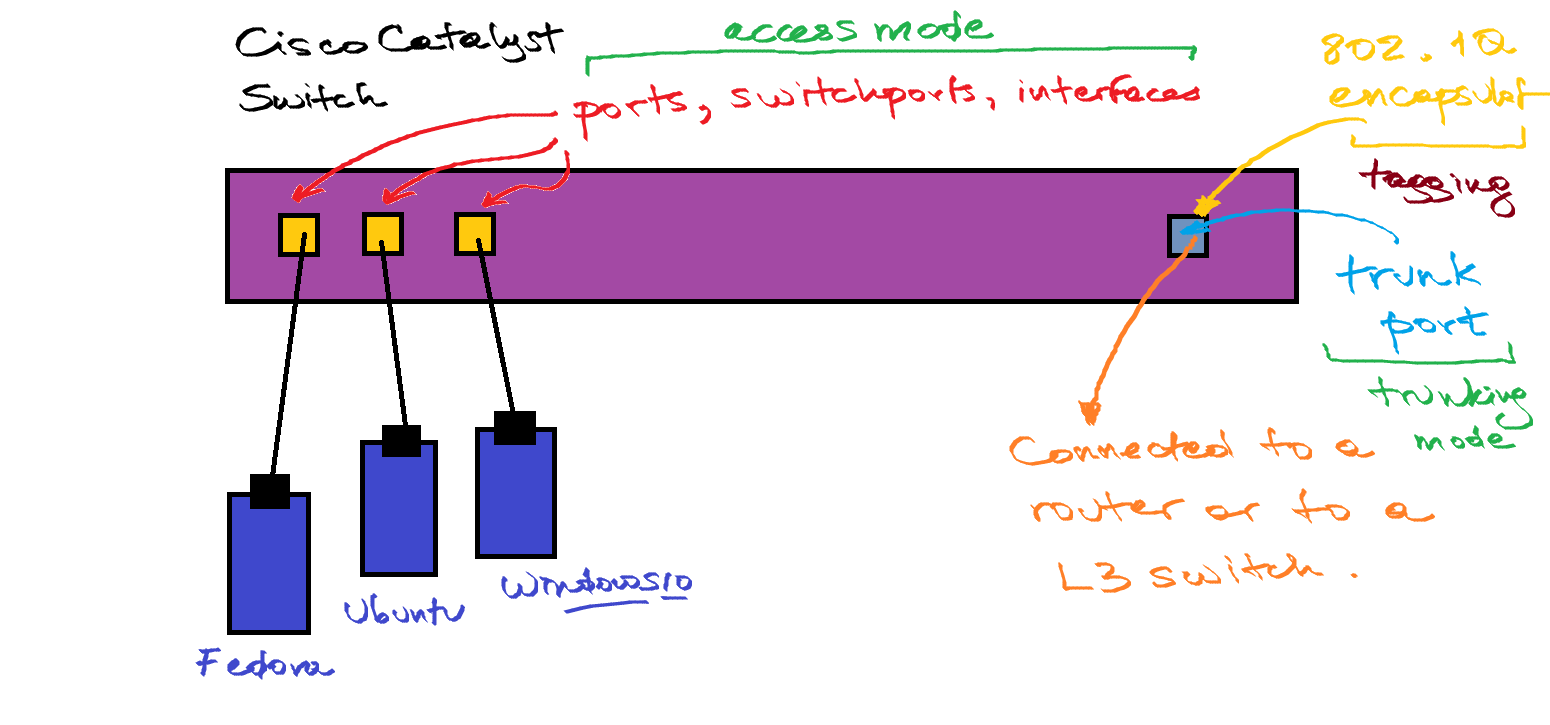 Cisco Catalyst
Switch
access mode
ports, switchports, interfaces
802.1Q
encapsulat
tagging
trunk
port
trunking
mode
Connected to a
router or to a
L3 switch.
Windows10
Ubuntu
Fedora